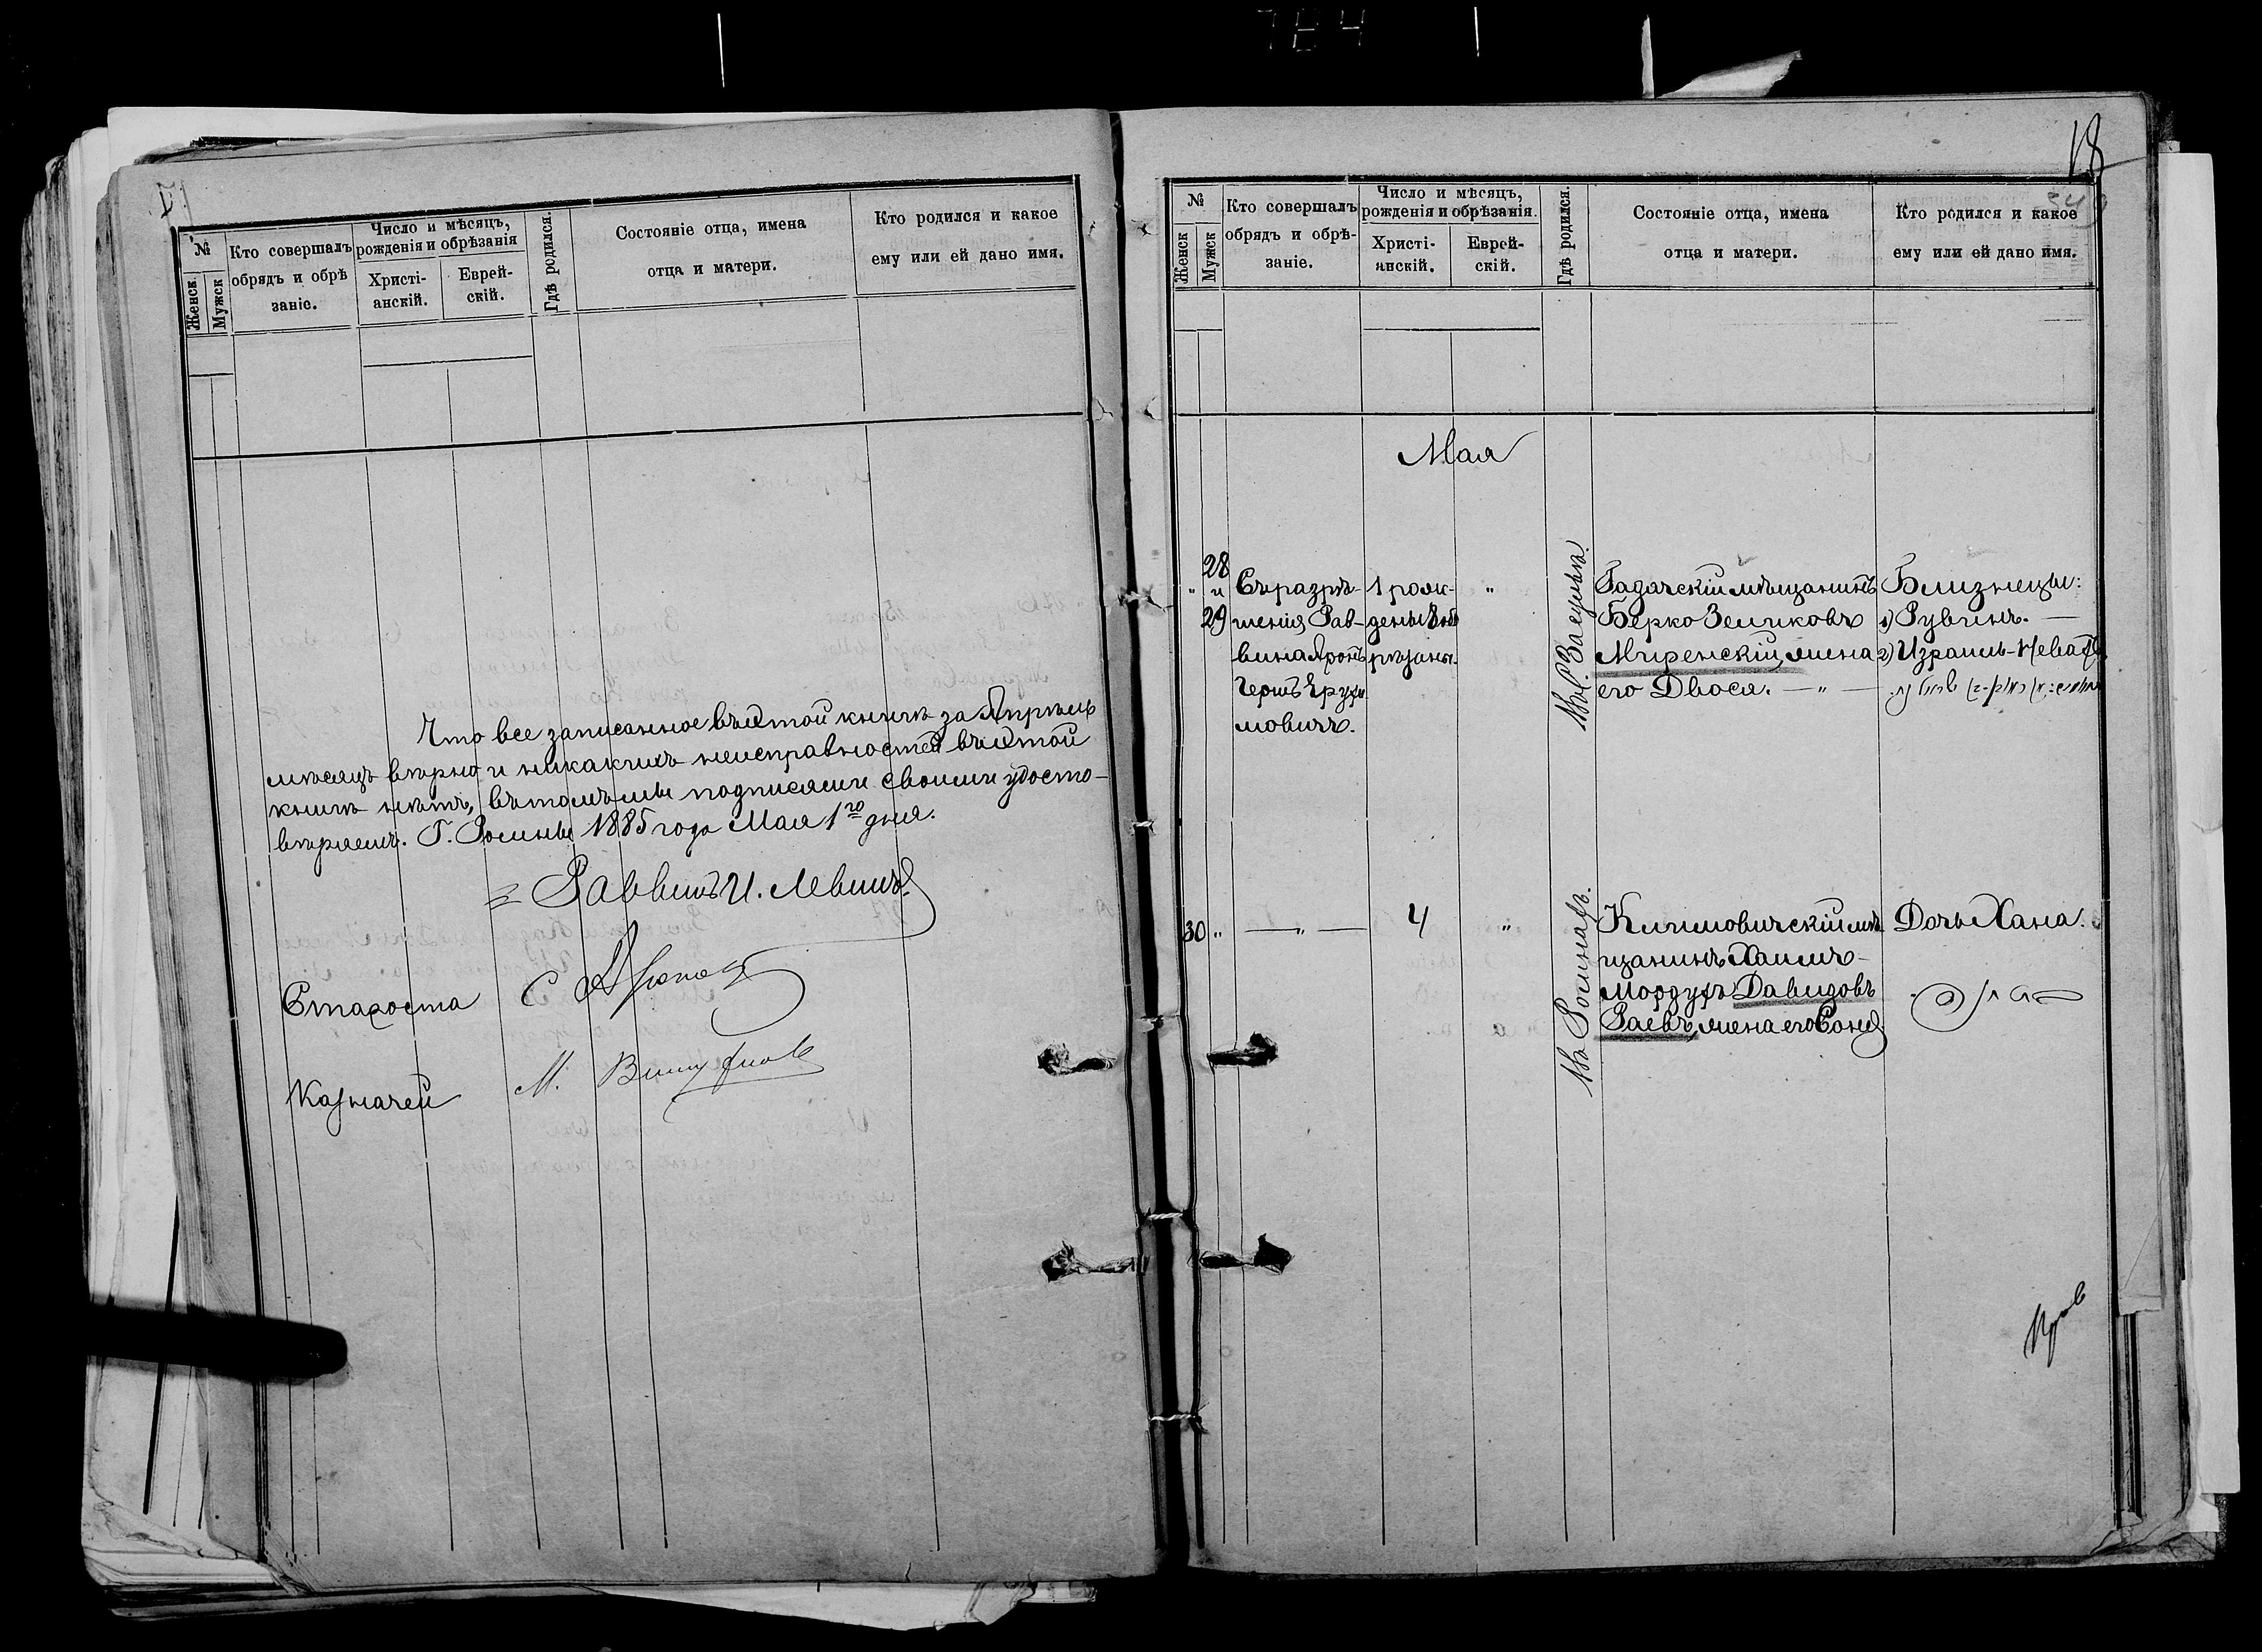 №
Женск.
Мужск
Кто совершалъ
обрядъ и обрѣ
заніе.
Число и мѣсяцъ,
рожденія и обрѣзанія
Христі-
анскій.
Еврей-
скій.
Гдѣ родился.
Состояніе отца, имена
отца и матери.
Кто родился и какое
ему или ей дано имя.
Что все записанное въ этой книгѣ за Апрѣль
мѣсяцъ вѣрно и никакихъ неисправностей въ этой
книгѣ нѣтъ, въ томъ мы подписями своими удосто-
вѣряемъ. Г. Ромны 1885 года Мая 1го дня.
Раввинъ И. Левинъ
Староста
Казначей М.
18
№
Женск
Мужск
Кто совершалъ
обрядъ и обрѣ-
заніе.
Число и мѣсяцъ,
рожденія и обрѣзанія.
Христі-
анскій.
Еврей-
скій.
Гдѣ родился.
Состояніе отца, имена
отца и матери.
Кто родился и какое
ему или ей дано имя.
Мая
28
и
29
Съ разрѣ-
шенія Рав-
вина Аронъ
Гершъ
мовичъ.
1 рож-
дены 8 об
рѣзаны.
Гадячскій мѣщанинъ
Берко Зеликовъ
Миренскій, жена
его Двося. — " —
Близнецы:
1) Рувинъ. —
2) Израиль-
30 " — " — 4 "
Въ Ромнахъ.
Климовичскій мѣ
щанинъ Хаимъ-
Мордухъ Давидовъ
Раевъ, жена его Соня
Дочь Хана.
חנה